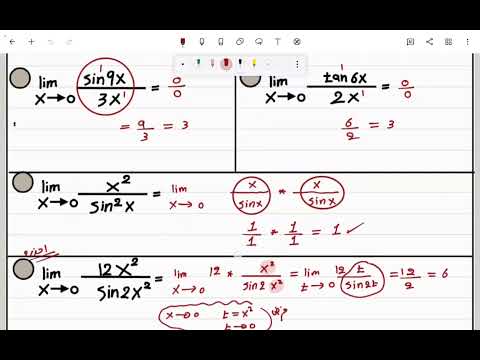 lim x→0 sin9x / 3x = 0/0
= 9/3 = 3
lim x→0 tan6x / 2x = 0/0
6/2 = 3
lim x→0 x² / sin²x = lim x→0 x/sinx * x/sinx
1/1 * 1/1 = 1 ✓
lim x→0 12x² / sin2x² = lim x→0 12 * x² / sin2x² = lim t→0 12 t / sin2t = 12/2 = 6
x→0 t = x²
t→0